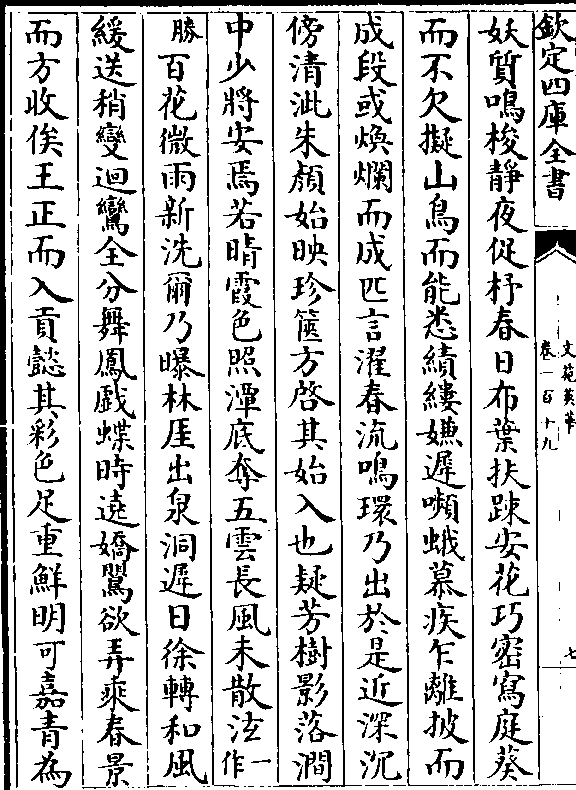 欽定四庫全書
文苑英華
卷一百十九
七
妖質鳴梭靜夜促杼春日布葉扶踈安花巧密寫庭葵
而不欠擬山鳥而能悉績縷嫌遲嚬蛾慕疾乍離披而
成段或煥爛而成匹言濯春流鳴環乃出於是近深沉
傍清沚朱顔始映珍篋方啓其始入也疑芳樹影落澗
中少將安焉若晴霞色照潭底奪五雲長風未散泫一作
勝百花微雨新洗爾乃曝林厓出泉洞遲日徐轉和風
緩送稍變迴鸞全分舞鳳戯蝶時遶嬌鸎欲弄乘春景
而方收俟王正而入貢懿其彩色足重鮮明可嘉青為